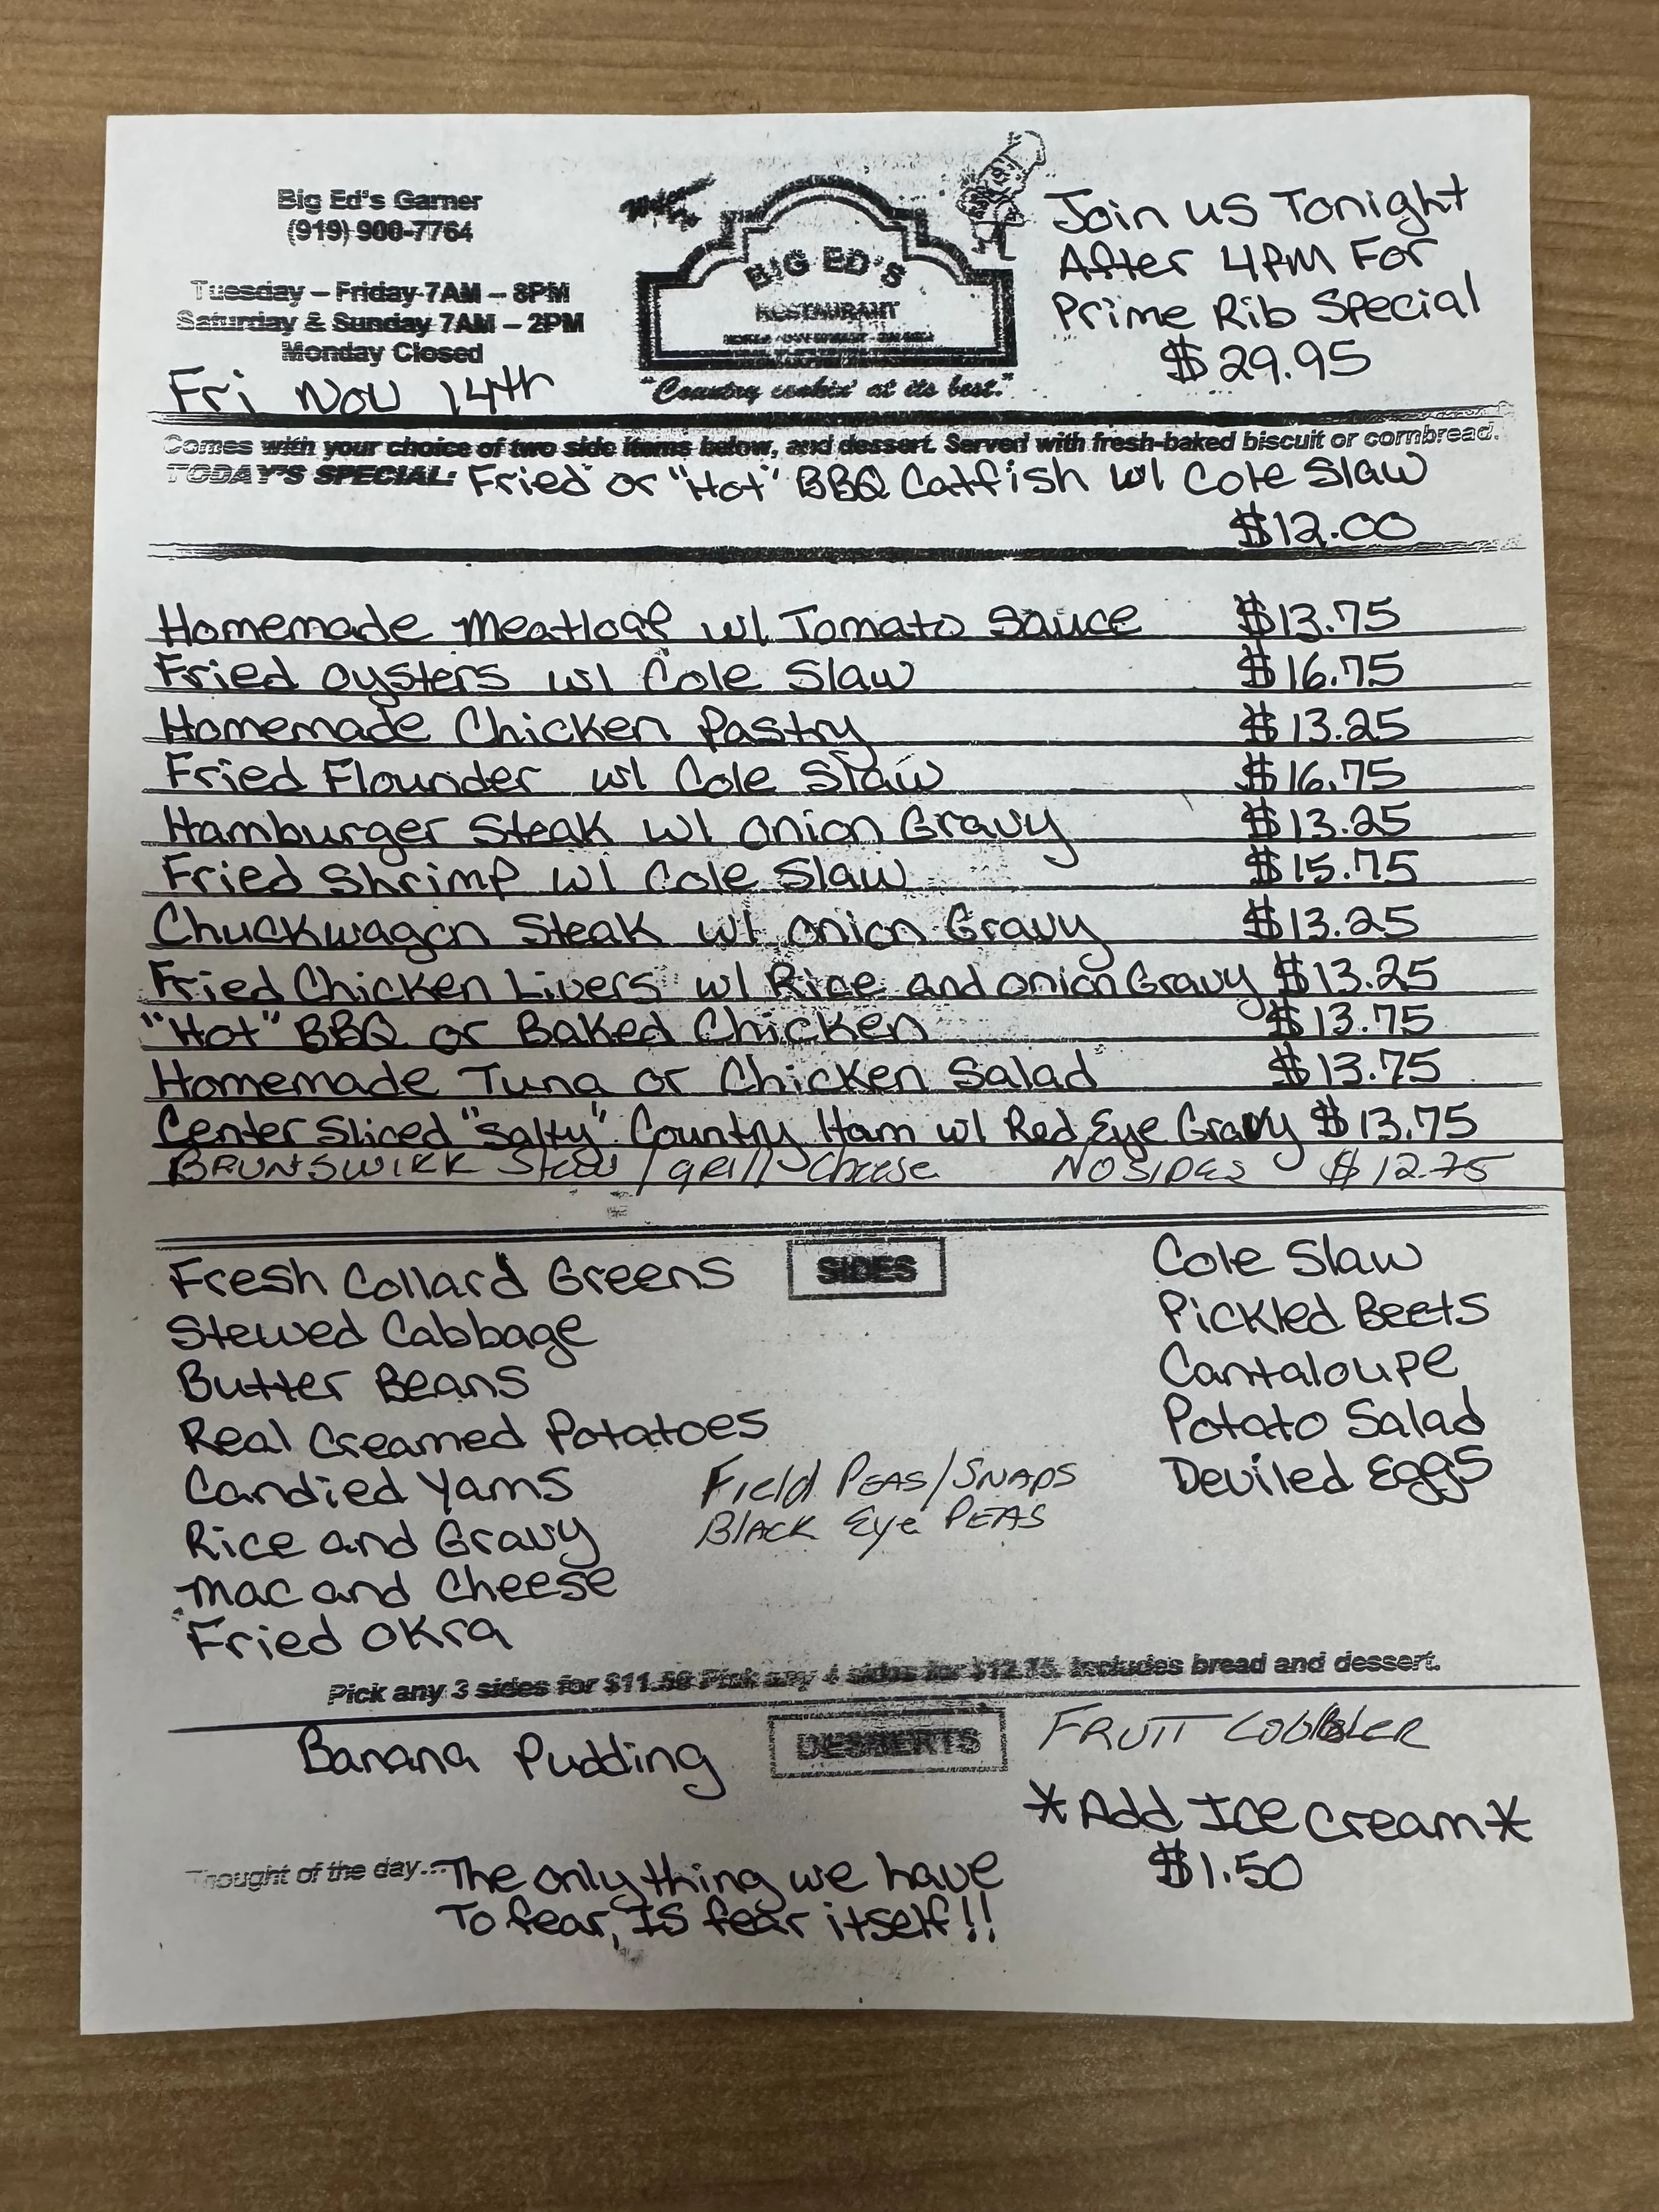 Big Ed's Garner
(919) 900-7764
Tuesday – Friday 7AM – 8PM
Saturday & Sunday 7AM – 2PM
Monday Closed
Fri Nov 14th
BIG ED'S
RESTAURANT
"Country cookin' at its best."
Join us Tonight
After 4PM For
Prime Rib Special
$29.95
Comes with your choice of two side items below, and dessert. Served with fresh-baked biscuit or cornbread.
TODAY'S SPECIAL: Fried or "Hot" BBQ Catfish w/ Cole Slaw
$12.00
Homemade Meatloaf w/ Tomato Sauce $13.75
Fried Oysters w/ Cole Slaw $16.75
Homemade Chicken Pastry $13.25
Fried Flounder w/ Cole Slaw $16.75
Hamburger Steak w/ Onion Gravy $13.25
Fried Shrimp w/ Cole Slaw $15.75
Chuckwagon Steak w/ Onion Gravy $13.25
Fried Chicken Livers w/ Rice and Onion Gravy $13.25
"Hot" BBQ or Baked Chicken $13.75
Homemade Tuna or Chicken Salad $13.75
Center Sliced "Salty" Country Ham w/ Red Eye Gravy $13.75
BRUNSWIKK Stew / grill Cheese NO SIDES $12.75
SIDES
Fresh Collard Greens
Stewed Cabbage
Butter Beans
Real Creamed Potatoes
Candied Yams
Rice and Gravy
Mac and Cheese
Fried Okra
Field PEAS/SNAPS
BLACK Eye PEAS
Cole Slaw
Pickled Beets
Cantaloupe
Potato Salad
Deviled Eggs
Pick any 3 sides for $11.50 Pick any 4 sides for $12.75. Includes bread and dessert.
DESSERTS
Banana Pudding
FRUIT COBBLER
*Add Ice Cream*
$1.50
Thought of the day... The only thing we have
To fear, IS fear itself!!